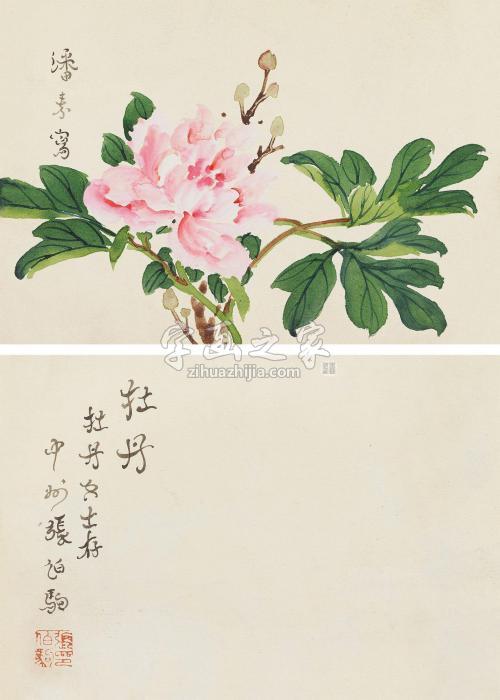 潘素寫
字画之家
zihuazhijia.com
牡丹
牡丹女士存
中州張伯駒
張伯駒印